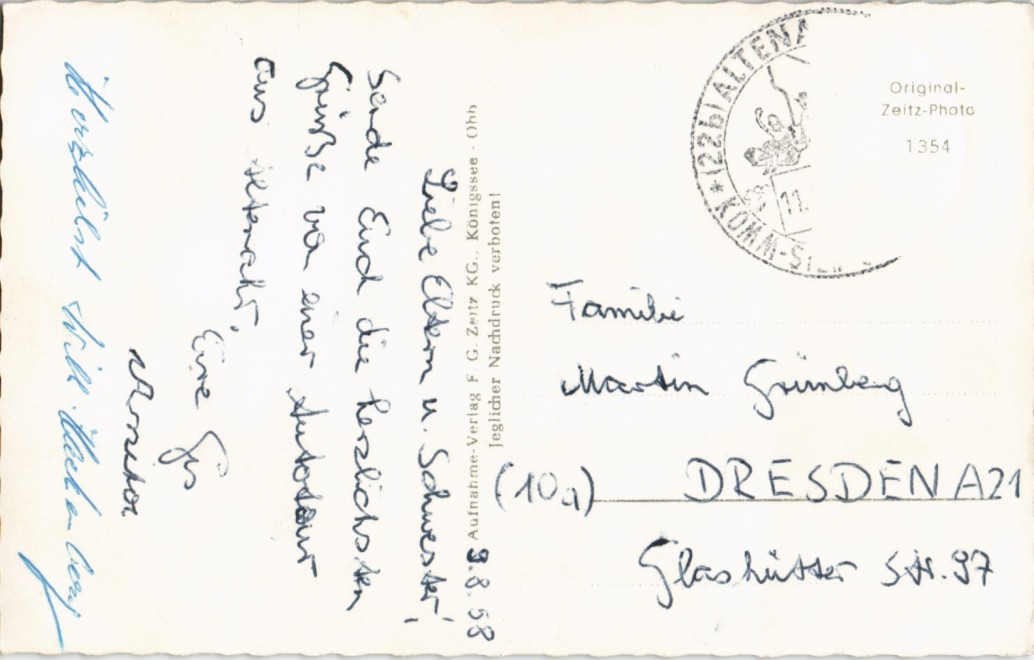 9.8.58
Liebe Eltern u. Schwester!
Sende Euch die herzlichsten
Grüße von einer Autotour
aus Altenahr.
Eure
Herzlichst Willi
Aufnahme-Verlag F. G. Zeitz KG., Königssee - Obb
Jeglicher Nachdruck verboten!
*(22b) ALTENA
11.
KOMM-
Original-
Zeitz-Photo
1354
Familie
Martin Grünberg
(10a) DRESDEN A21
Glashütter Str. 97